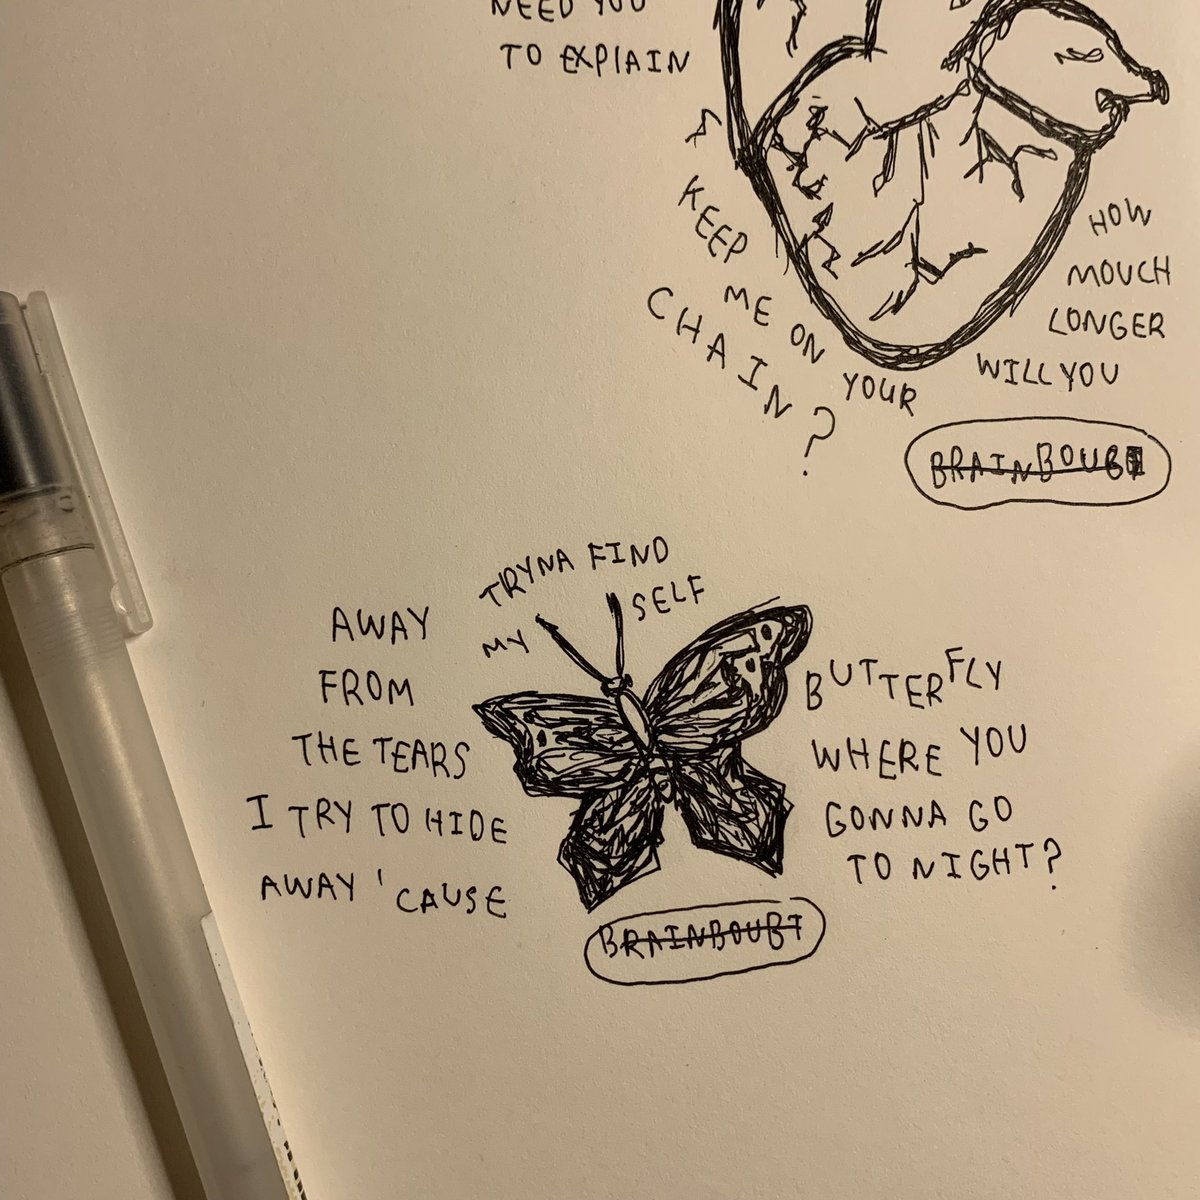 NEED YOU
TO EXPLAIN
HOW
MOUCH
LONGER
WILL YOU
KEEP
ME ON YOUR
CHAIN?
BRAINBOUBT
AWAY
FROM
THE TEARS
I TRY TO HIDE
AWAY 'CAUSE
MY TRYNA FIND
SELF
BUTTERFLY
WHERE YOU
GONNA GO
TO NIGHT?
BRAINBOUBT